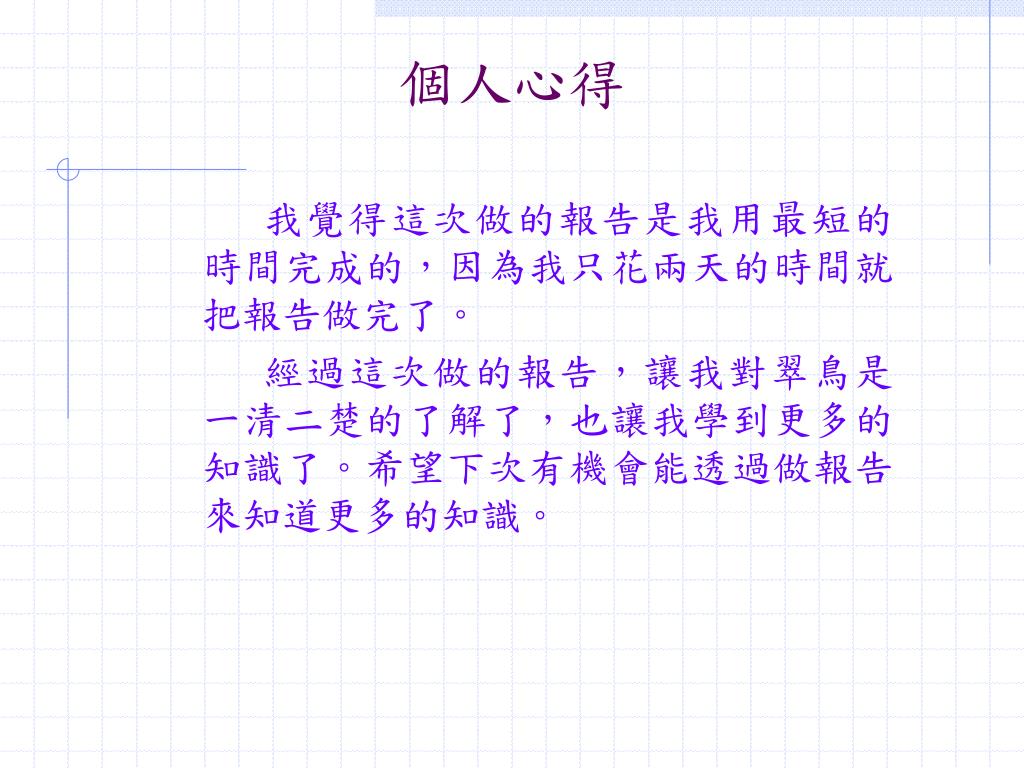 個人心得
我覺得這次做的報告是我用最短的
時間完成的，因為我只花兩天的時間就
把報告做完了。
經過這次做的報告，讓我對翠鳥是
一清二楚的了解了，也讓我學到更多的
知識了。希望下次有機會能透過做報告
來知道更多的知識。